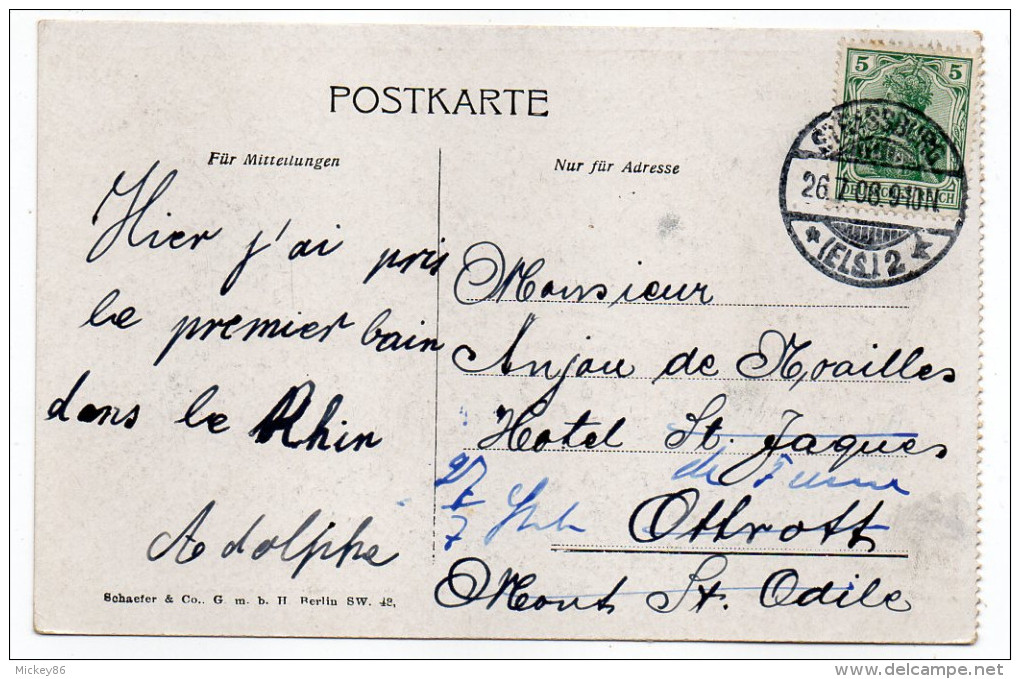 POSTKARTE
Für Mitteilungen
Nur für Adresse
5 5
STRASSBURG
26.7.08.9-10N
* (ELS.) 2 *
Hier j'ai pris
le premier bain
dans le Rhin
Adolphe
Monsieur
Anjou de Noailles
Hotel St. Jaques
27
7
Ottrott
Mont St. Odile
Schaefer & Co., G. m. b. H. Berlin SW. 48,
Mickey86
www.delcampe.net